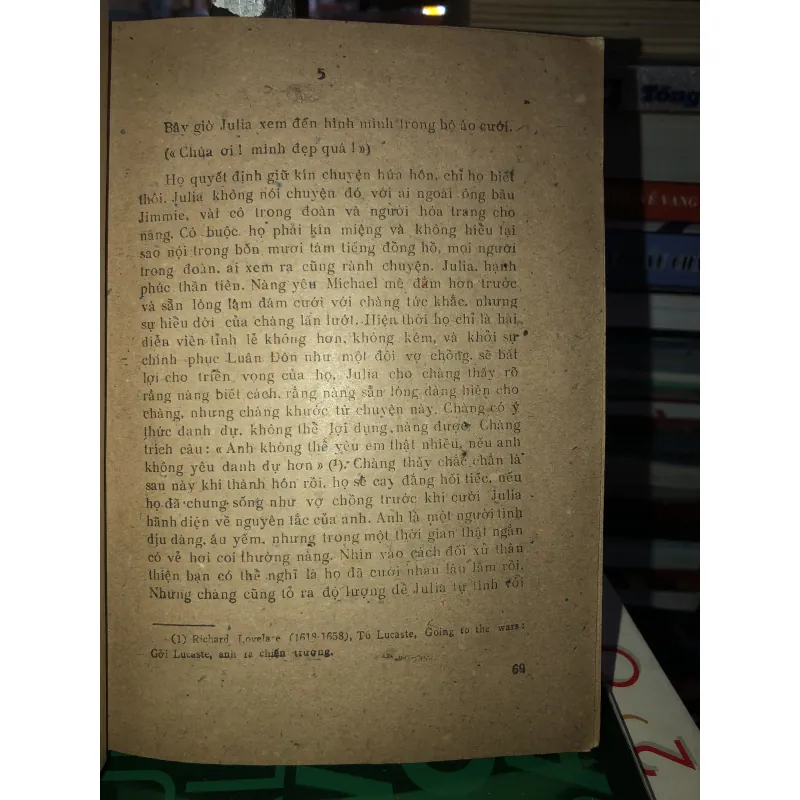 5
Bây giờ Julia xem đến hình mình trong bộ áo cưới.
(« Chúa ơi ! mình đẹp quá ! »)
Họ quyết định giữ kín chuyện hứa hôn, chỉ họ biết
thôi. Julia không nói chuyện đó với ai ngoài ông bầu
Jimmie, vài cô trong đoàn và người hóa trang cho
nàng. Cô buộc họ phải kín miệng và không hiểu tại
sao nội trong bốn mươi tám tiếng đồng hồ, mọi người
trong đoàn. ai xem ra cũng rành chuyện. Julia. hạnh
phúc thần tiên. Nàng yêu Michael mê đắm hơn trước
và sẵn lòng làm đám cưới với chàng tức khắc. nhưng
sự hiểu đời của chàng lấn lướt. Hiện thời họ chỉ là hai
diễn viên tỉnh lẻ không hơn, không kém, và khởi sự
chinh phục Luân Đôn như một đôi vợ chồng. sẽ bất
lợi cho triển vọng của họ. Julia cho chàng thấy rõ
rằng nàng biết cách. rằng nàng sẵn lòng dâng hiến cho
chàng, nhưng chàng khước từ chuyện này. Chàng có ý
thức danh dự. không thể lợi dụng nàng được. Chàng
trích câu : « Anh không thể yêu em thật nhiều, nếu anh
không yêu danh dự hơn » (1). Chàng thấy chắc chắn là
sau này khi thành hôn rồi, họ sẽ cay đắng hối tiếc, nếu
họ đã chung sống như vợ chồng trước khi cưới Julia
hãnh diện về nguyên tắc của anh. Anh là một người tình
dịu dàng. âu yếm, nhưng trong một thời gian thật ngắn
có vẻ hơi coi thường nàng. Nhìn vào cách đối xử thân
thiện bạn có thể nghĩ là họ đã cưới nhau lâu lắm rồi.
Nhưng chàng cũng tỏ ra độ lượng để Julia tự tình với
(1) Richard Lovelace (1618-1658), To Lucaste, Going to the wars :
Gởi Lucaste, anh ra chiến trường.
69
Tổng
Ế VANG